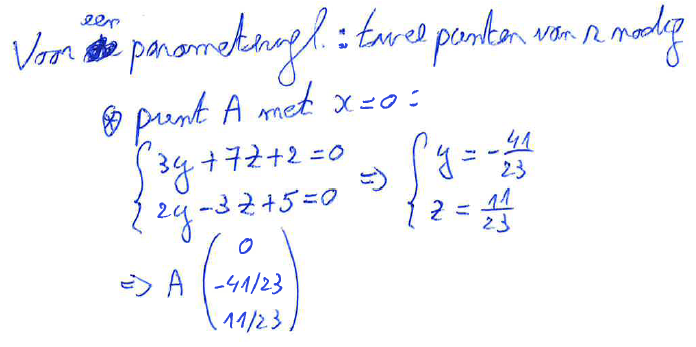 Voor een parametervgl. : twee punten van r nodig
⊛ punt A met x=0 :
{ 3y + 7z + 2 = 0 => { y = -41/23
{ 2y - 3z + 5 = 0 { z = 11/23
=> A ( 0
-41/23
11/23 )